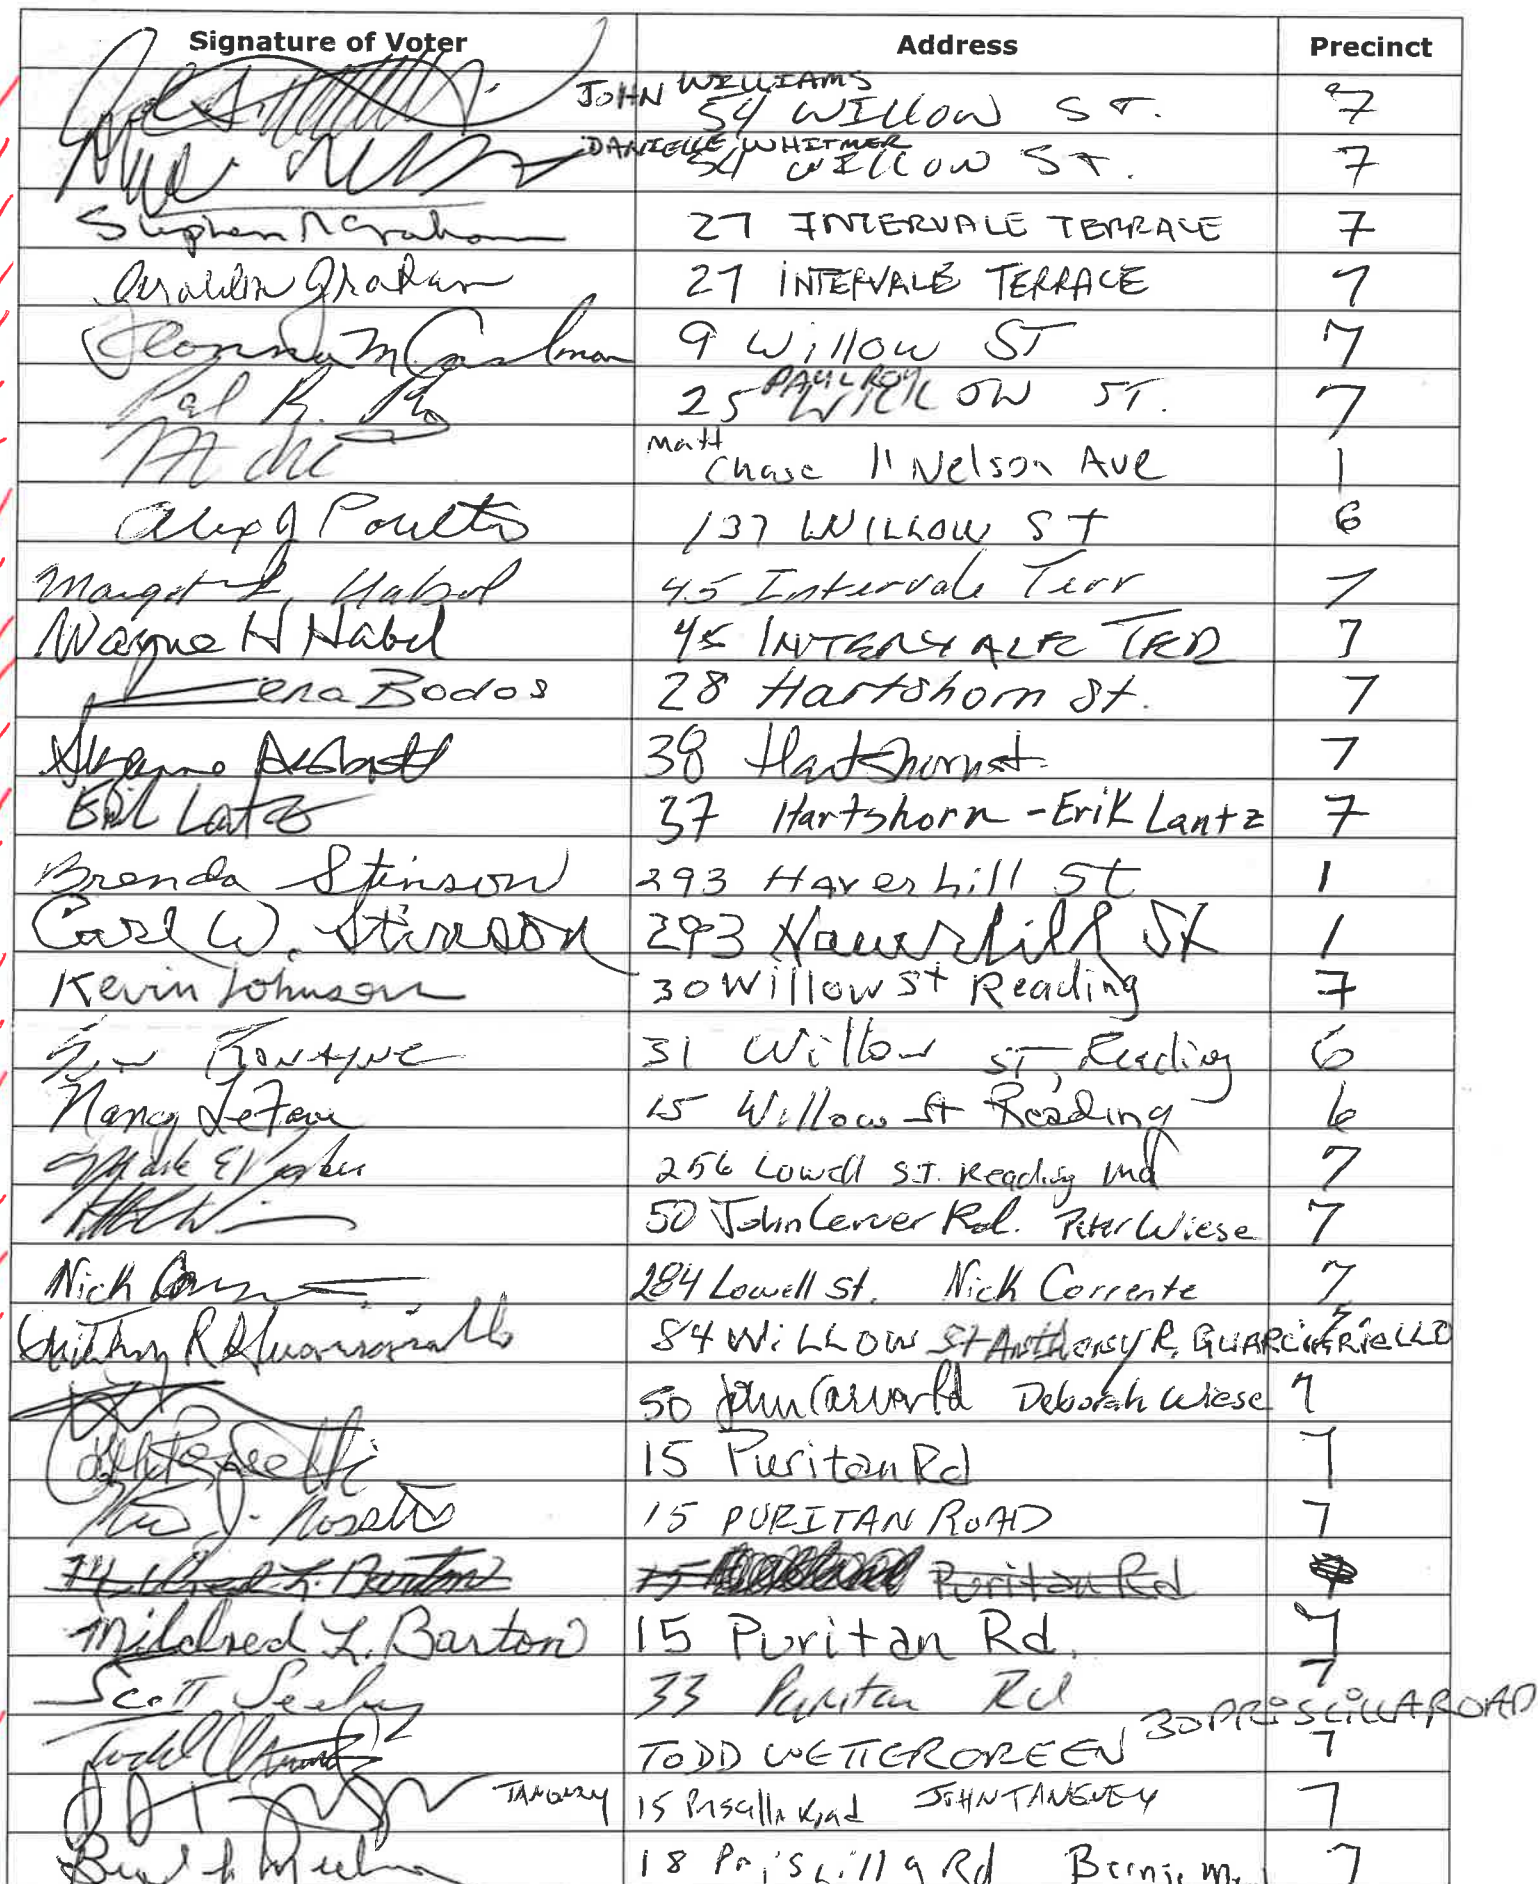 Signature of Voter Address Precinct
JOHN WILLIAMS
54 WILLOW ST. 7
DANIELLE WHITMER
54 WILLOW ST. 7
Stephen R Graham 27 INTERVALE TERRACE 7
Geraldin Graham 27 INTERVALE TERRACE 7
9 Willow ST 7
PAUL ROY
25 WILLOW ST. 7
Matt
Chase 11 Nelson Ave 1
Alex J Poulton 137 WILLOW ST 6
Margot L. Habel 45 Intervale Terr 7
Wayne H Habel 45 INTERVALE TER 7
Lena Bodos 28 Hartshorn St. 7
38 Hartshorn st. 7
Erik Lantz 37 Hartshorn - Erik Lantz 7
Brenda Stinson 293 Haverhill St 1
Carl W. Stinson 293 Haverhill St 1
Kevin Johnson 30 Willow St Reading 7
RONAYNE 31 Willow ST, Reading 6
Nancy LeFave 15 Willow St Reading 6
Mark E 256 Lowell ST. Reading Ma 7
50 John Carver Rd. Peter Wiese 7
Nick 284 Lowell St. Nick Corrente 7
Anthony R Guarciariello 84 WILLOW St Anthony R. GUARCIARIELLO 7
50 John Carver Rd Deborah Wiese 7
15 Puritan Rd 7
J. 15 PURITAN ROAD 7
Mildred L. Barton Puritan Rd
Mildred L. Barton 15 Puritan Rd. 7
Scott Seeley 33 Puritan Rd 7
30 PRISCILLA ROAD
Todd TODD WETTERGREEN 7
TANGNEY 15 Priscilla Road JOHN TANGNEY 7
18 Priscilla Rd 7